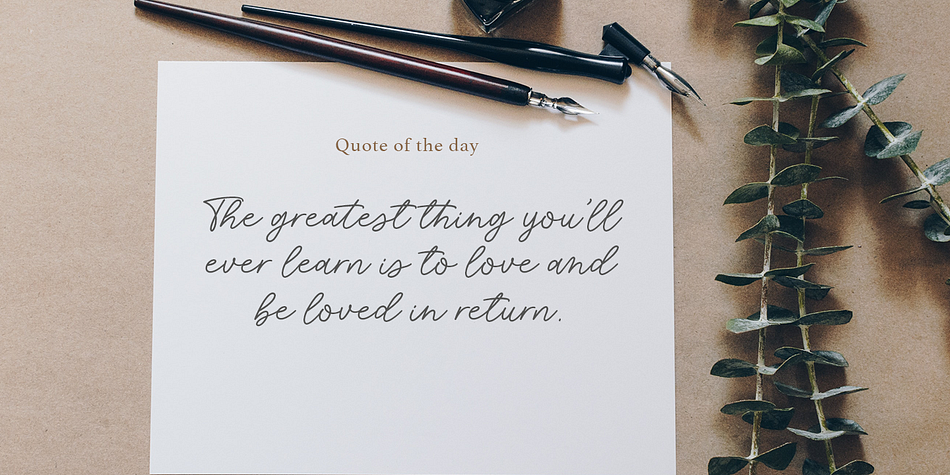 Quote of the day
The greatest thing you'll
ever learn is to love and
be loved in return.